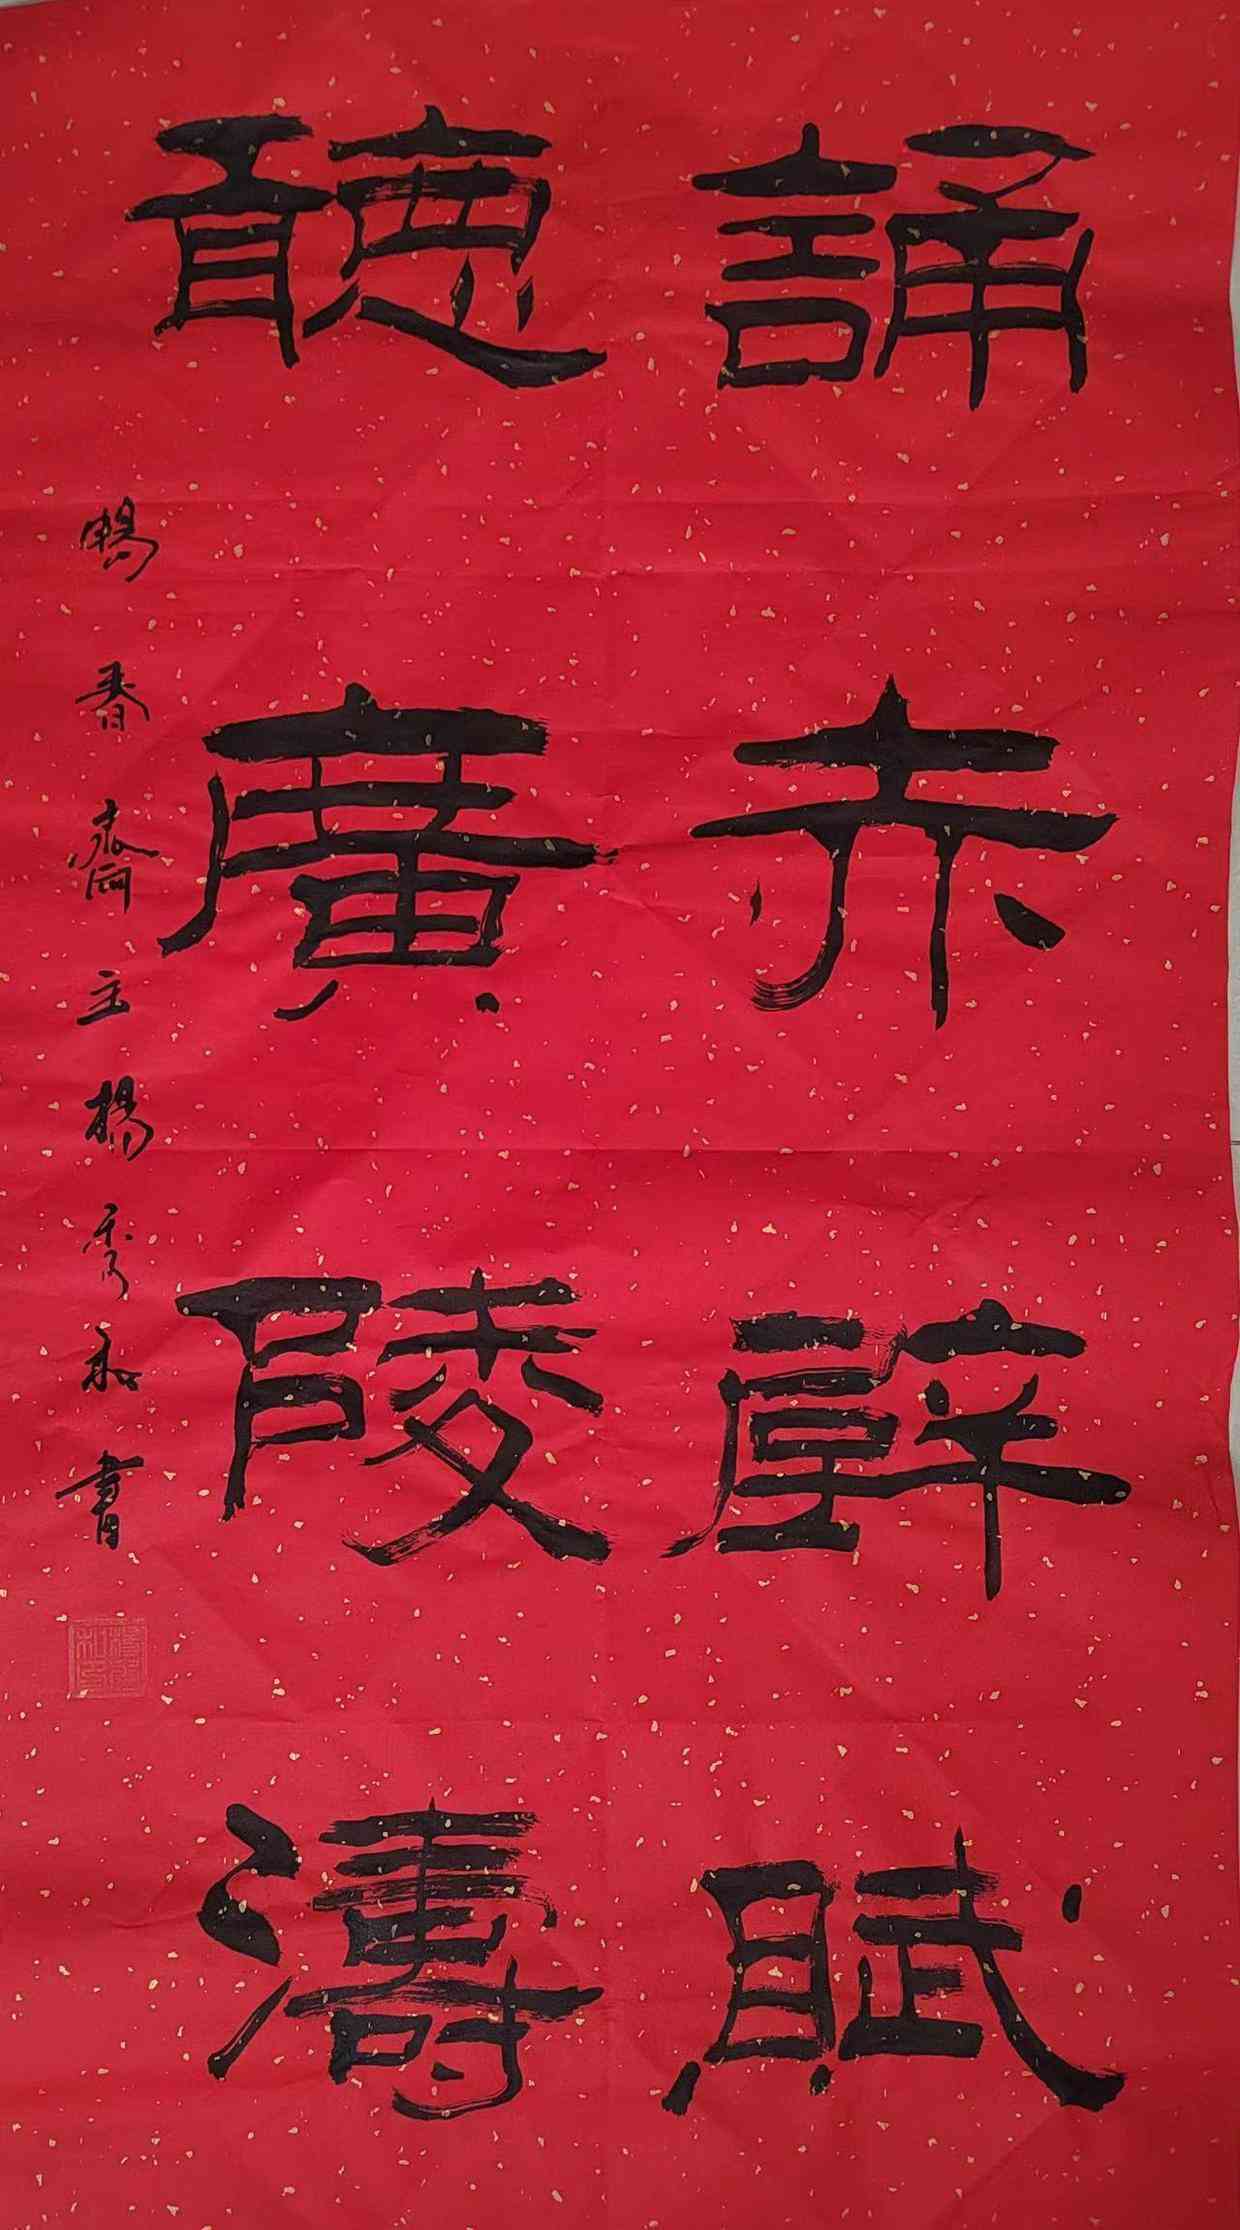 誦赤壁賦
聽廣陵濤
暢春齋主楊秀和書